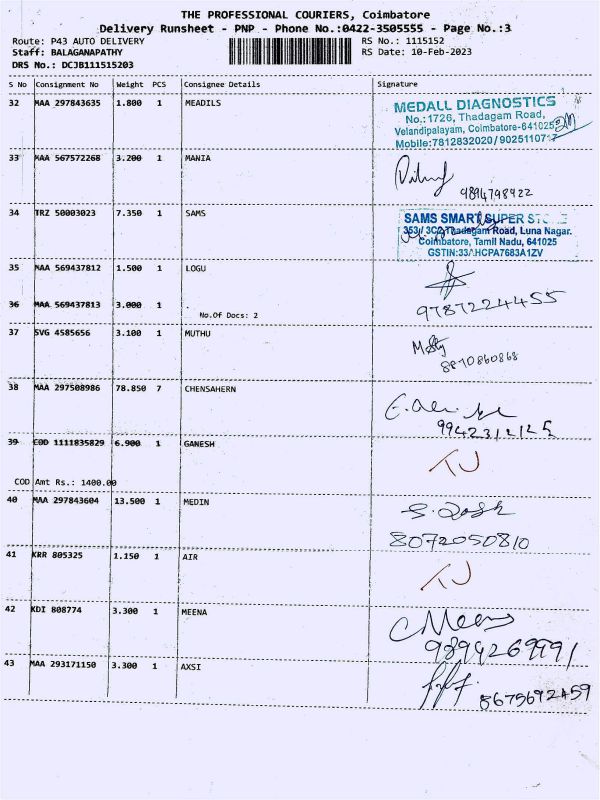 THE PROFESSIONAL COURIERS, Coimbatore
Delivery Runsheet - PNP - Phone No.:0422-3505555 - Page No.:3
Route: P43 AUTO DELIVERY RS No.: 1115152
Staff: BALAGANAPATHY RS Date: 10-Feb-2023
DRS No.: DCJB111515203
S No Consignment No Weight PCS Consignee Details Signature
32 MAA 297843635 1.800 1 MEADILS
MEDALL DIAGNOSTICS
No.:1726, Thadagam Road,
Velandipalayam, Coimbatore-641025
Mobile:7812832020/9025110717
33 MAA 567572268 3.200 1 MANIA
9894798922
34 TRZ 50003023 7.350 1 SAMS
SAMS SMART SUPER
353/ 3C2 Thadagam Road, Luna Nagar.
Coimbatore, Tamil Nadu, 641025
GSTIN:33AHCPA7683A1ZV
35 MAA 569437812 1.500 1 LOGU
36 MAA 569437813 3.000 1 .
9787224455
No.Of Docs: 2
37 SVG 4585656 3.100 1 MUTHU
8870860868
38 MAA 297508986 78.850 7 CHENSAHERN
9942312125
39 COD 1111835829 6.900 1 GANESH
TJ
COD Amt Rs.: 1400.00
40 MAA 297843604 13.500 1 MEDIN
8072050810
41 KRR 805325 1.150 1 AIR
TJ
42 KDI 808774 3.300 1 MEENA
C Meena
9894269991
43 MAA 293171150 3.300 1 AXSI
8675692459